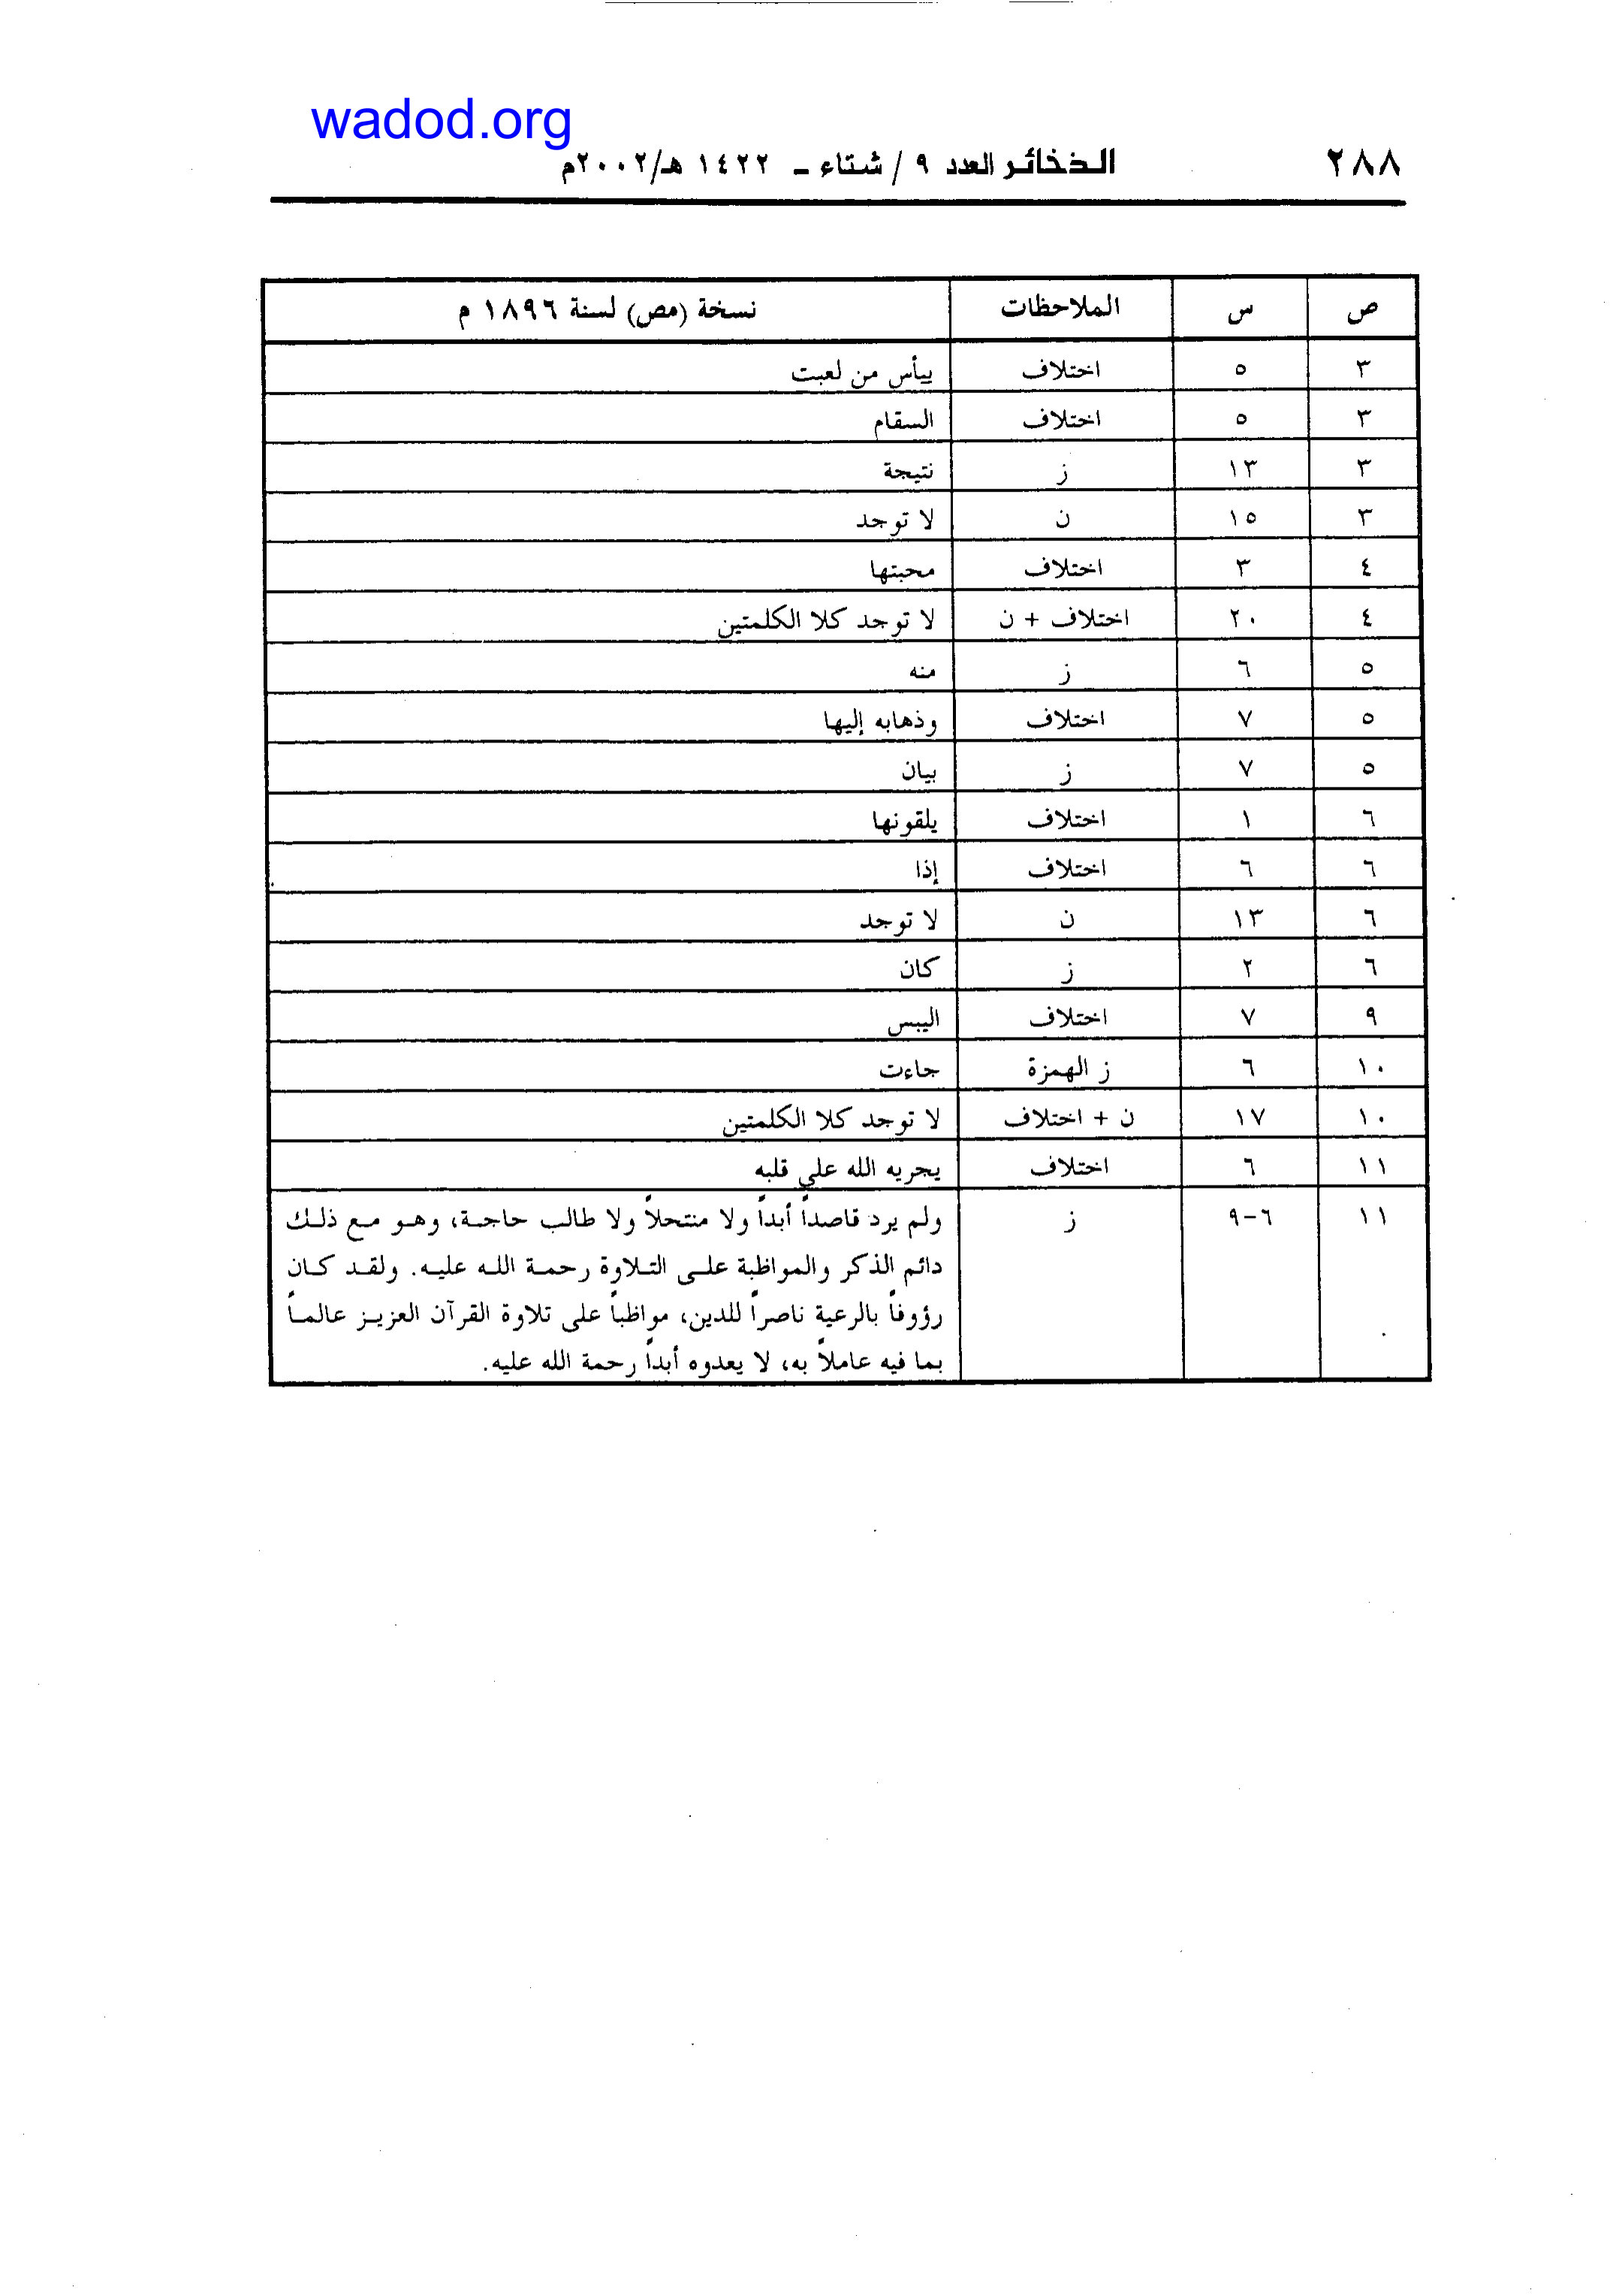 wadod.org
٢٨٨ الذخائر العدد ٩ / شتاء - ١٤٢٢ هـ/٢٠٠٢م
ص س الملاحظات نسخة (مص) لسنة ١٨٩٦ م
٣ ٥ اختلاف ييأس من لعبت
٣ ٥ اختلاف السقام
٣ ١٣ ز نتيجة
٣ ١٥ ن لا توجد
٤ ٣ اختلاف محبتها
٤ ٢٠ اختلاف + ن لا توجد كلا الكلمتين
٥ ٦ ز منه
٥ ٧ اختلاف وذهابه إليها
٥ ٧ ز بيان
٦ ١ اختلاف يلقونها
٦ ٦ اختلاف إذا
٦ ١٣ ن لا توجد
٦ ٢ ز كان
٩ ٧ اختلاف اليبس
١٠ ٦ ز الهمزة جاءت
١٠ ١٧ ن + اختلاف لا توجد كلا الكلمتين
١١ ٦ اختلاف يجريه الله على قلبه
١١ ٦-٩ ز ولم يرد قاصداً أبداً ولا منتحلاً ولا طالب حاجة، وهو مع ذلك
دائم الذكر والمواظبة على التلاوة رحمة الله عليه. ولقد كان
رؤوفاً بالرعية ناصراً للدين، مواظباً على تلاوة القرآن العزيز عالماً
بما فيه عاملاً به، لا يعدوه أبداً رحمة الله عليه.